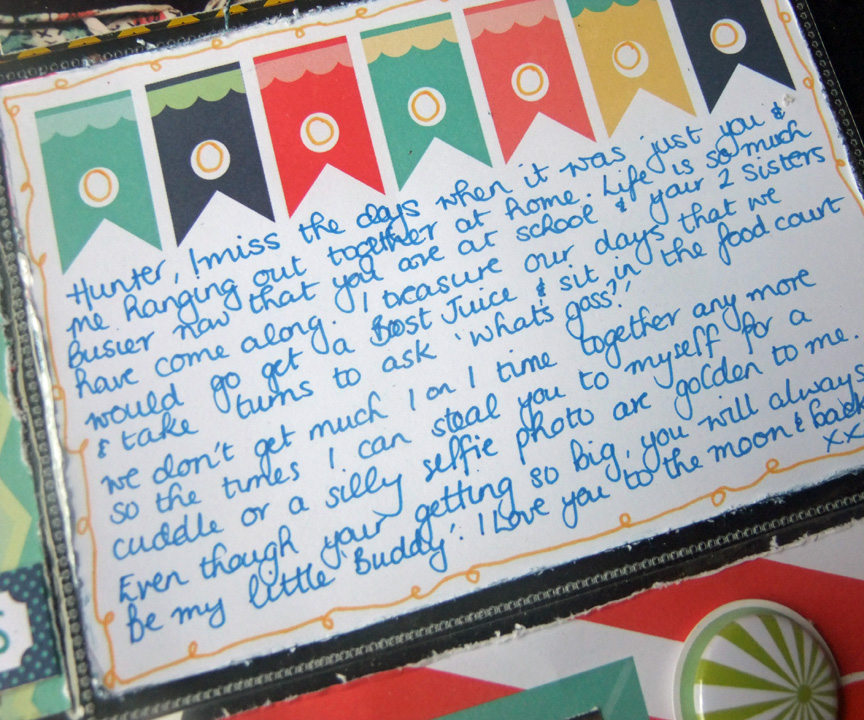 Hunter, I miss the days when it was just you &
me hanging out together at home. Life is so much
busier now that you are at school & your 2 sisters
have come along. I treasure our days that we
would go get a Boost Juice & sit in the food court
& take turns to ask 'what's goss?'
we don't get much 1 on 1 time together any more
so the times I can steal you to myself for a
cuddle or a silly selfie photo are golden to me.
Even though your getting so big, you will always
be my little 'Buddy'. I Love you to the moon & back
xx